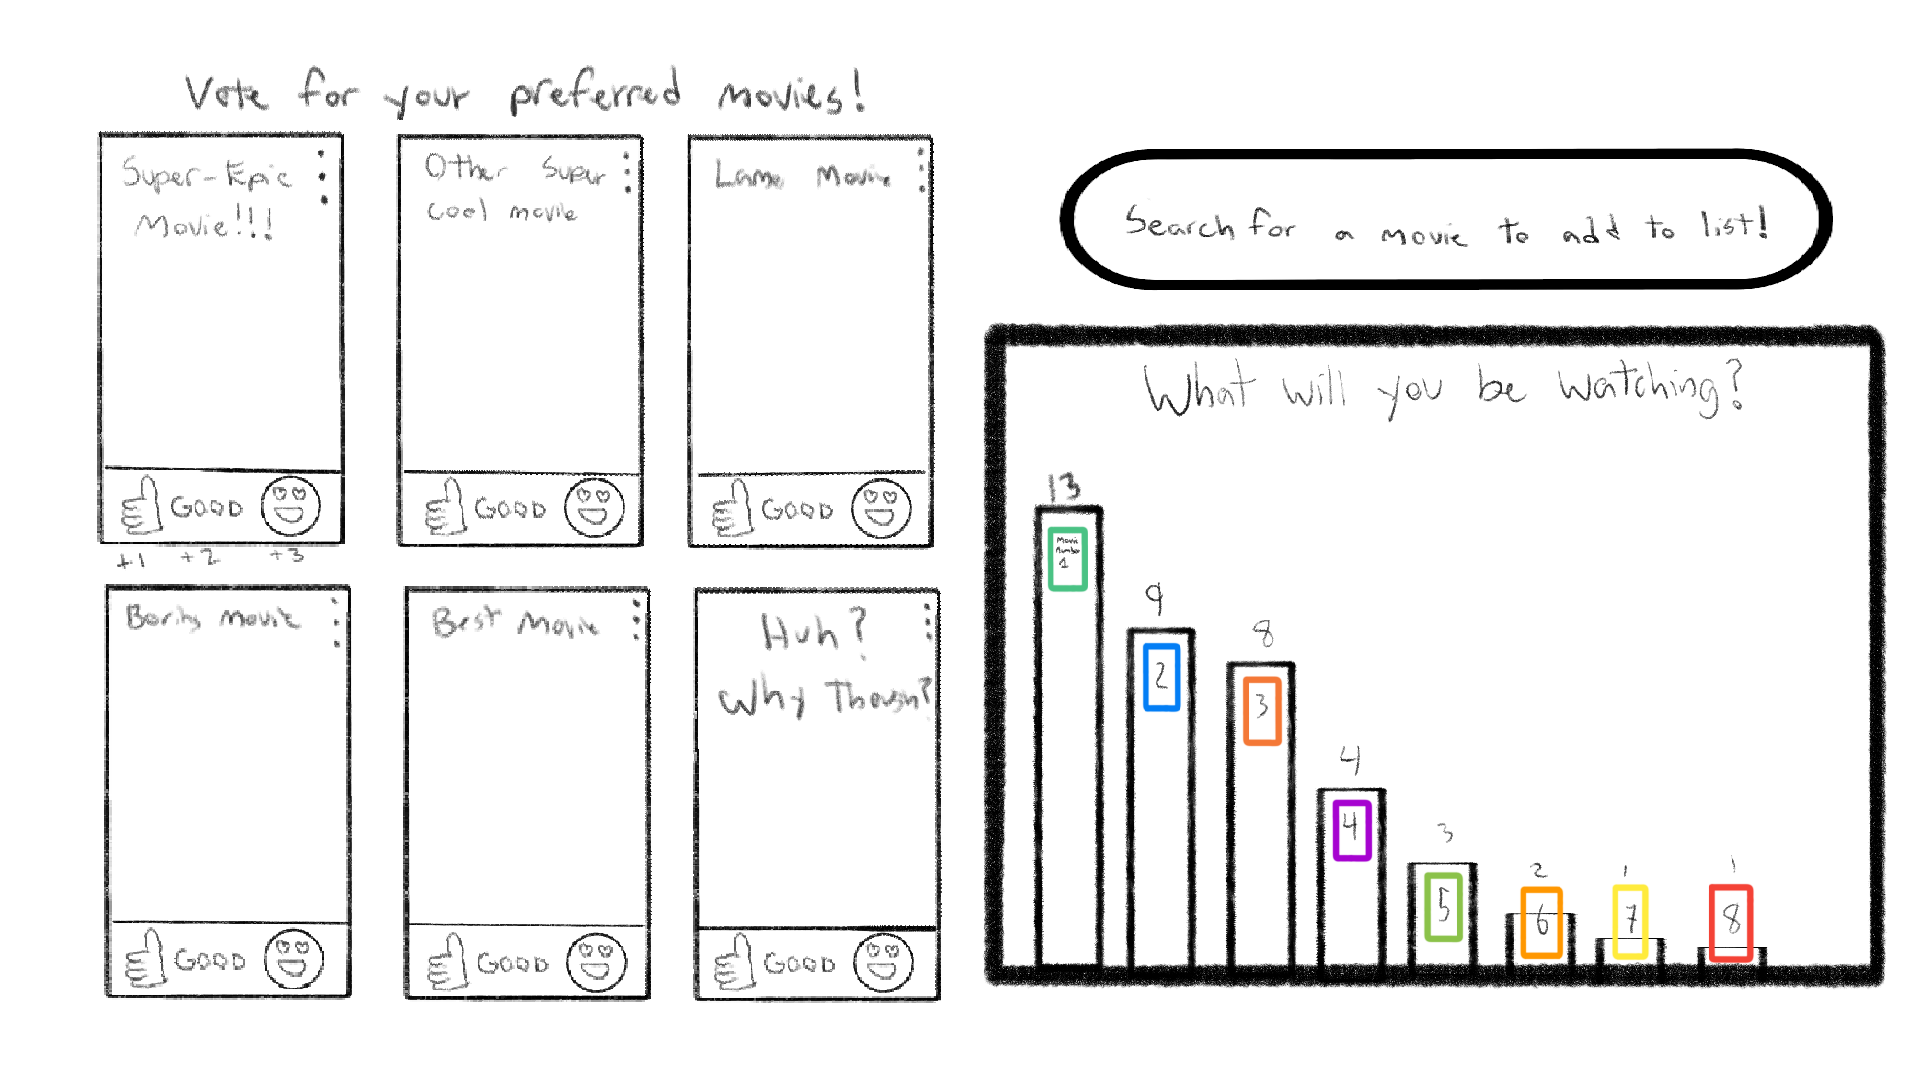 Vote for your preferred movies!
Super-Epic
Movie!!!
Other Super
cool movie
Lame Movie
GOOD
GOOD
GOOD
+1 +2 +3
Boring movie
Best Movie
Huh?
Why Though?
GOOD
GOOD
GOOD
Search for a movie to add to list!
What will you be watching?
13
Movie
Number
1
9
2
8
3
4
4
3
5
2
6
1
7
1
8